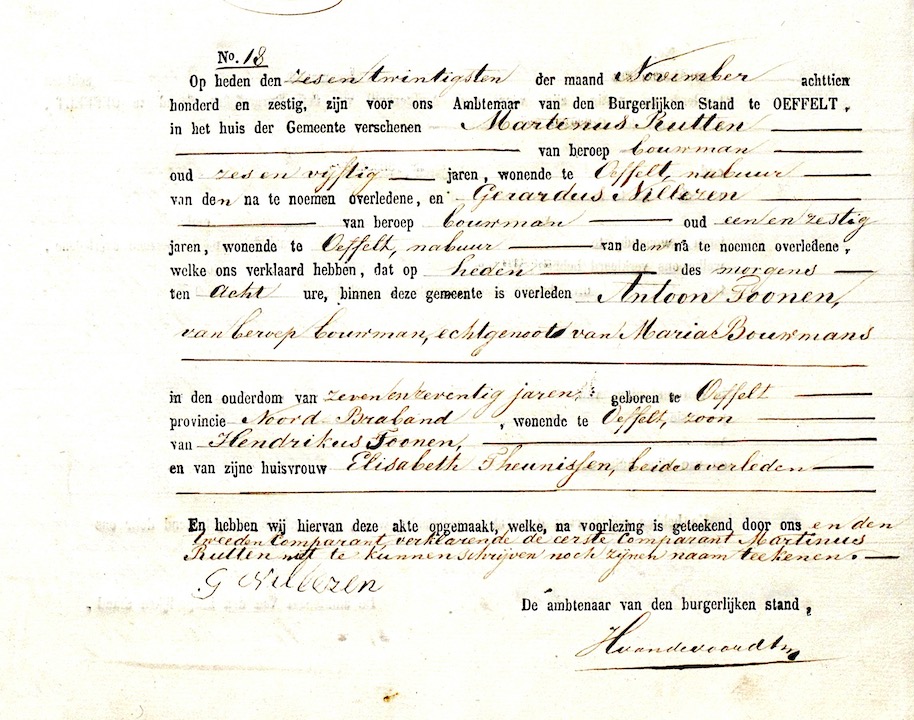 No. 18
Op heden den zes en twintigsten der maand November achttien
honderd en zestig, zijn voor ons Ambtenaar van den Burgerlijken Stand te OEFFELT,
in het huis der Gemeente verschenen Martinus Rutten
van beroep bouwman
oud zes en vijftig jaren, wonende te Oeffelt, nabuur
van den na te noemen overledene, en Gerardus Nillezen
van beroep bouwman oud een en zestig
jaren, wonende te Oeffelt, nabuur van den na te noemen overledene,
welke ons verklaard hebben, dat op heden des morgens
ten Acht ure, binnen deze gemeente is overleden Antoon Toonen,
van beroep bouwman, echtgenoot van Maria Bouwmans
in den ouderdom van zeven en zeventig jaren, geboren te Oeffelt
provincie Noord Braband, wonende te Oeffelt, zoon
van Hendrikus Toonen,
en van zijne huisvrouw Elisabeth Theunissen, beide overleden
En hebben wij hiervan deze akte opgemaakt, welke, na voorlezing is geteekend door ons en den
tweeden Comparant, verklarende de eerste Comparant Martinus
Rutten niet te kunnen schrijven noch zijnen naam teekenen.
G Nillezen
De ambtenaar van den burgerlijken stand,